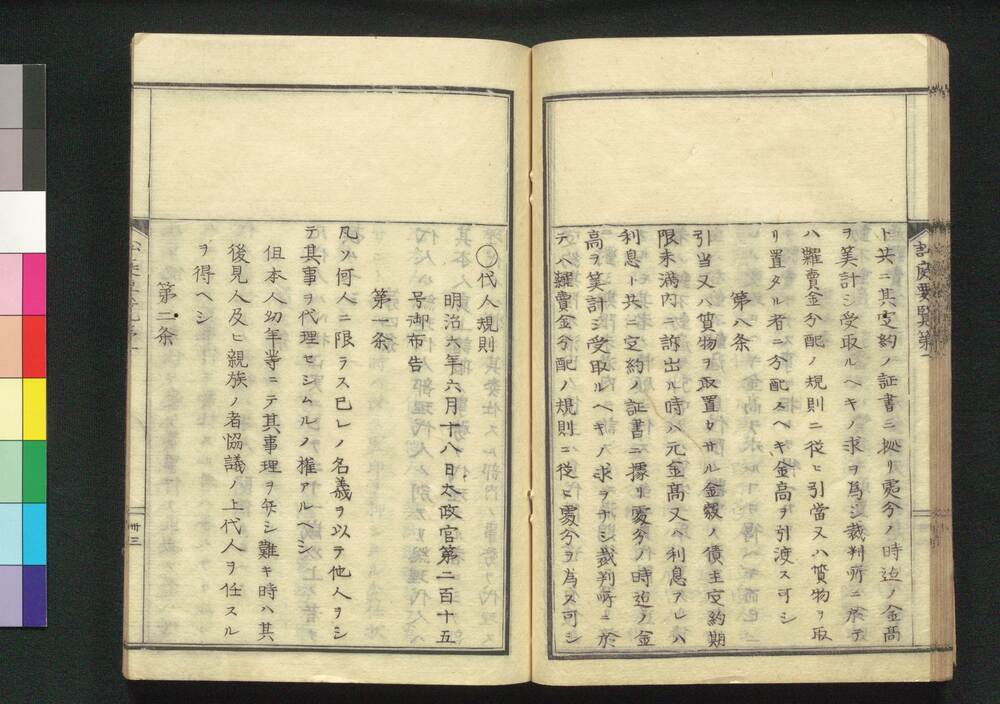 ト共ニ其定約ノ証書ニ拠リ処分ノ時迄ノ金高
ヲ算計シ受取ルヘキノ求ヲ為シ裁判所ニ於テ
ハ糶賣金分配ノ規則ニ従ヒ引當又ハ質物ヲ取
リ置タル者ニ分配スヘキ金高ヲ引渡ス可シ
第八条
引当又ハ質物ヲ取置カサル金穀ノ債主定約期
限未満内ニ訴出ル時ハ元金高又ハ利息アレハ
利息ト共ニ定約ノ証書ニ據リ處分ノ時迄ノ金
高ヲ算計シ受取ルヘキノ求ヲナシ裁判所ニ於
テハ糶賣金分配ノ規則ニ従ヒ處分ヲ為ス可シ
訟庭要覧第一
〇代人規則
明治六年六月十八日太政官第二百十五
号御布告
第一条
凡ソ何人ニ限ラス已レノ名義ヲ以テ他人ヲシ
テ其事ヲ代理セシムルノ権アルヘシ
但本人幼年等ニテ其事理ヲ弁シ難キ時ハ其
後見人及ヒ親族ノ者協議ノ上代人ヲ任スル
ヲ得ヘシ
第二条
卅三